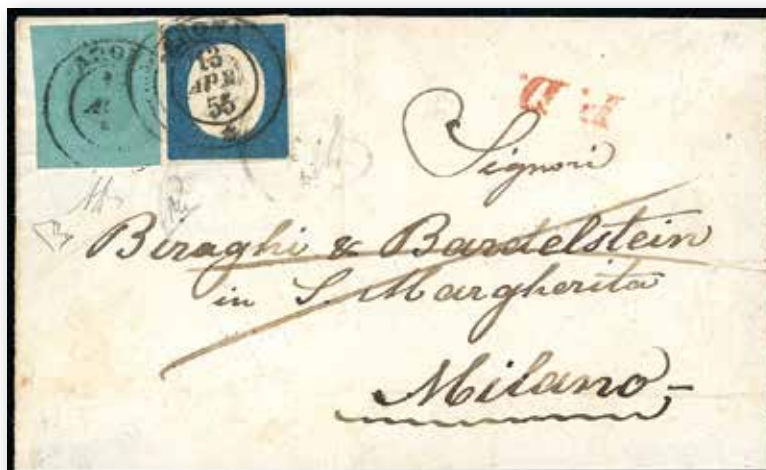 ARON
13
APR
55
P.D.
Signori
Biraghi & Bardelstein
in S. Margherita
Milano